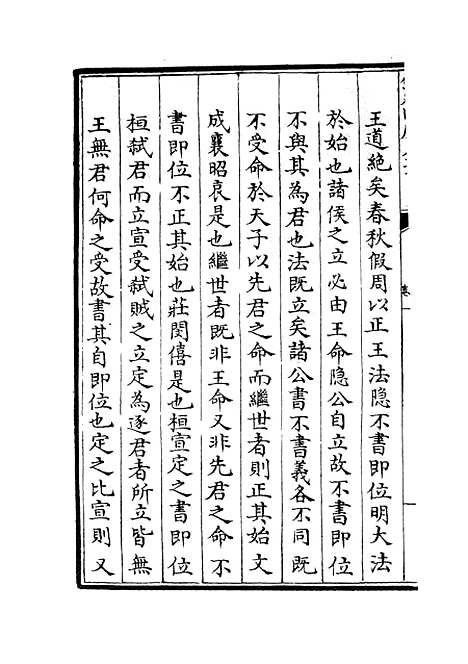 王道絶矣春秋假周以正王法隠不書即位明大法
於始也諸侯之立必由王命隠公自立故不書即位
不與其為君也法既立矣諸公書不書義各不同既
不受命於天子以先君之命而繼世者則正其始文
成襄昭哀是也繼世者既非王命又非先君之命不
書即位不正其始也莊閔僖是也桓宣定之書即位
桓弑君而立宣受弑賊之立定為逐君者所立皆無
王無君何命之受故書其自即位也定之比宣則又